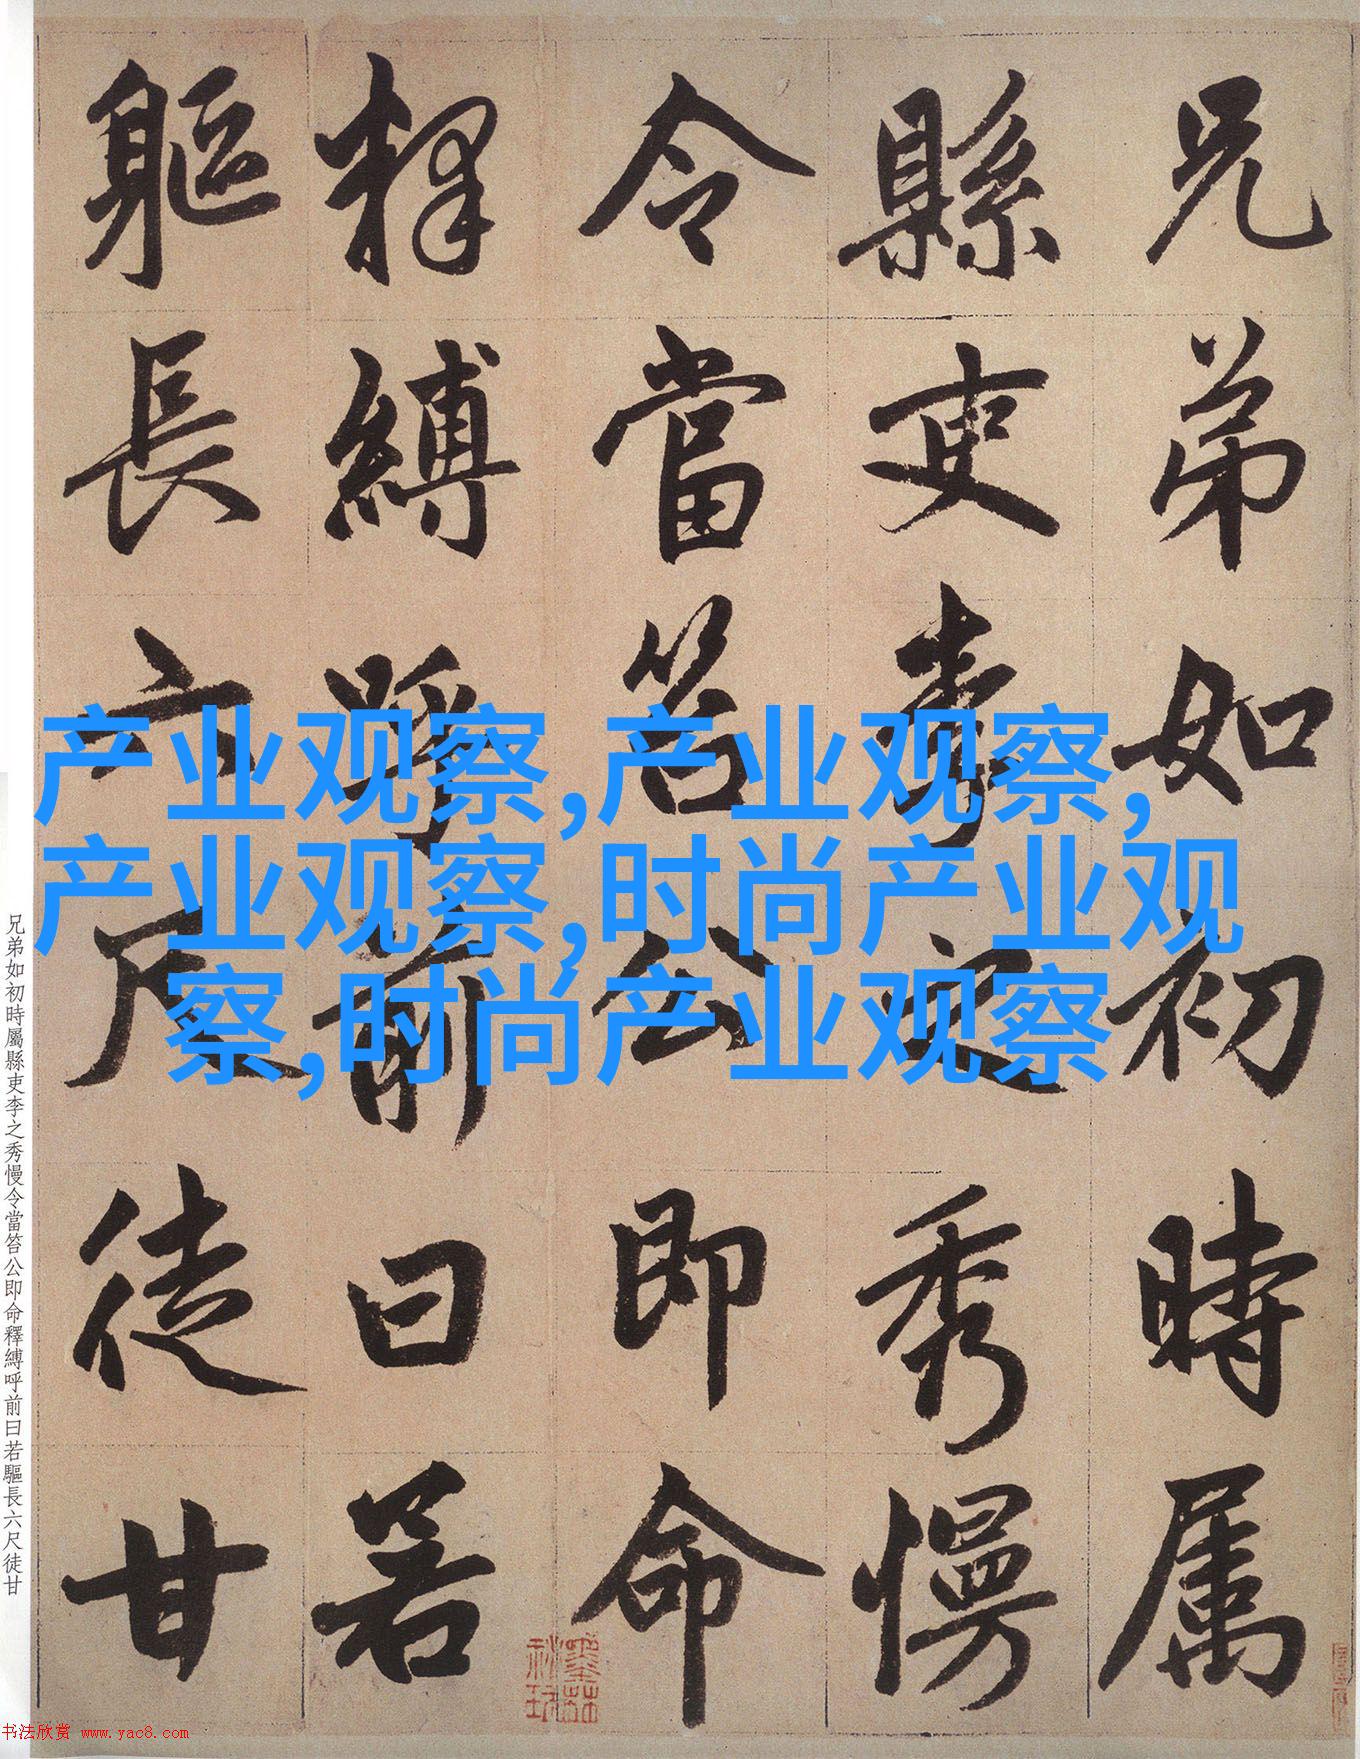 兄弟如初時属
縣吏李之秀慢
令當笞公即命
釋縛呼前曰若
軀長六尺徒甘
产业观察,产业观察,
产业观察,时尚产业观
察,时尚产业观察
兄弟如初時屬縣吏李之秀慢令當笞公即命釋縛呼前曰若驅長六尺徒甘
书法欣赏 www.yac8.com